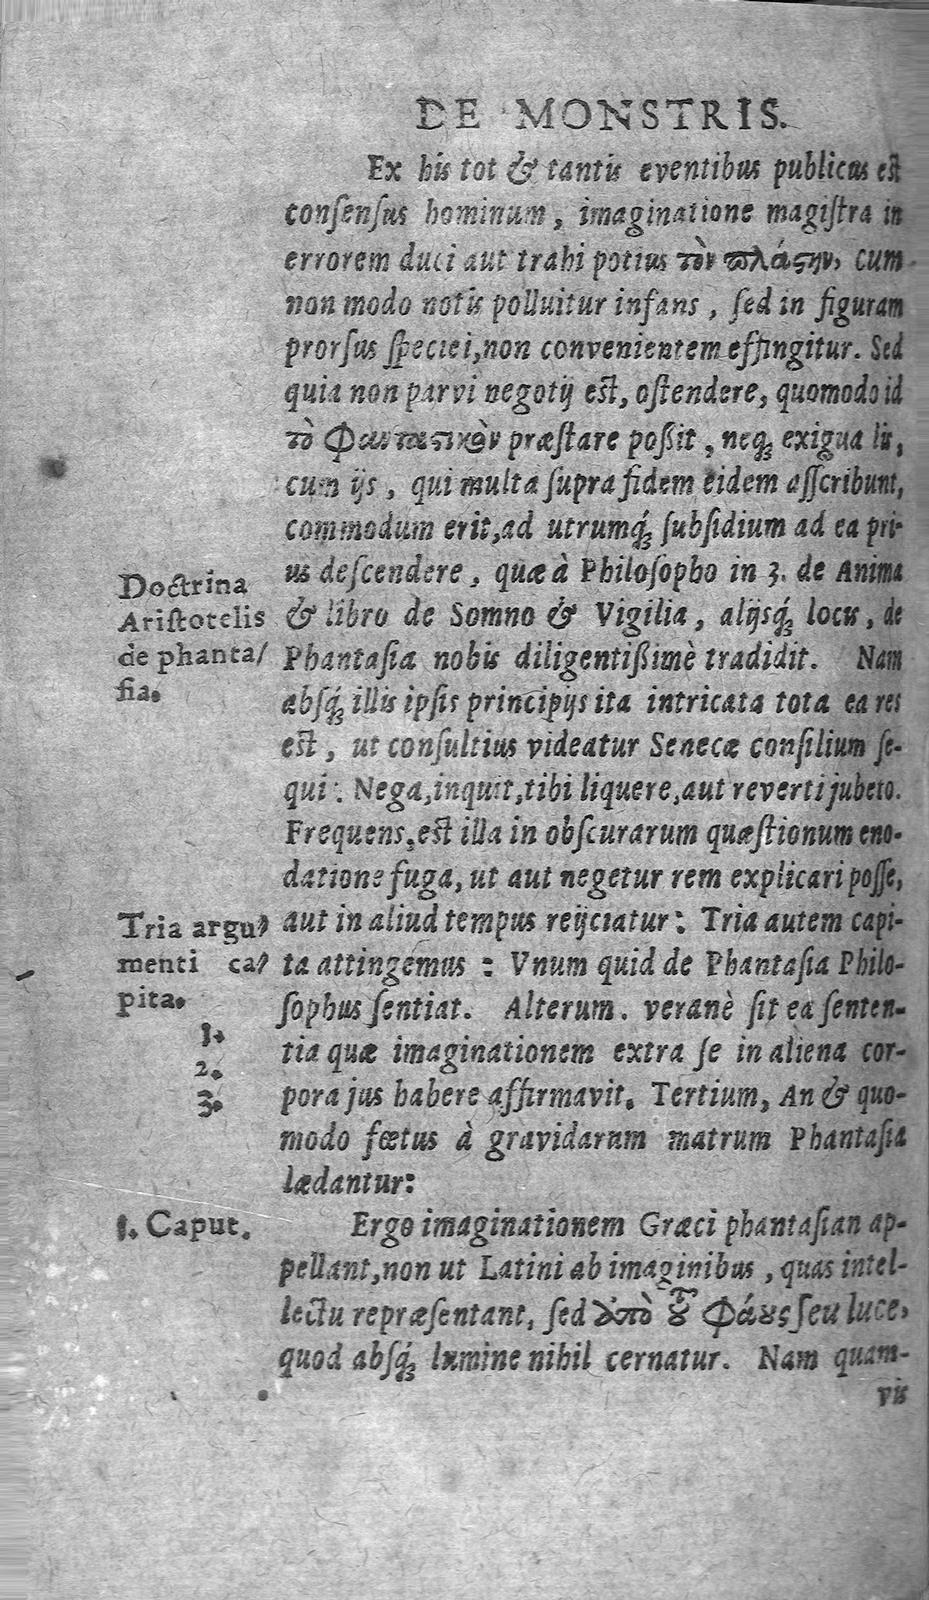 DE MONSTRIS.
Ex his tot & tantis eventibus publicus est
consensus hominum, imaginatione magistra in
errorem duci aut trahi potius τὸν πλάστην, cum
non modo notis polluitur infans, sed in figuram
prorsus speciei, non convenientem effingitur. Sed
quia non parvi negotij est, ostendere, quomodo id
τὸ Φανταστικὸν præstare poßit, neq; exigua lis,
cum ijs, qui multa supra fidem eidem asscribunt,
commodum erit, ad utrumq́; subsidium ad ea pri-
us descendere, quæ à Philosopho in 3. de Anima
Doctrina
Aristotelis
de phanta/
sia.
& libro de Somno & Vigilia, alijsq́; locis, de
Phantasia nobis diligentißimè tradidit. Nam
absq́; illis ipsis principijs ita intricata tota ea res
est, ut consultius videatur Senecæ consilium se-
qui: Nega, inquit, tibi liquere, aut reverti jubeto.
Frequens, est illa in obscurarum quæstionum eno-
datione fuga, ut aut negetur rem explicari posse,
Tria argu/
menti ca/
pita.
1.
2.
3.
aut in aliud tempus reijciatur: Tria autem capi-
ta attingemus: Vnum quid de Phantasia Philo-
sophus sentiat. Alterum. veranè sit ea senten-
tia quæ imaginationem extra se in aliena cor-
pora jus habere affirmavit. Tertium, An & quo-
modo fœtus à gravidarum matrum Phantasia
lædantur:
1. Caput.
Ergo imaginationem Græci phantasian ap-
pellant, non ut Latini ab imaginibus, quas intel-
lectu repræsentant, sed ἀπὸ τοῦ Φάους seu luce,
quod absq́; lumine nihil cernatur. Nam quam-
vis